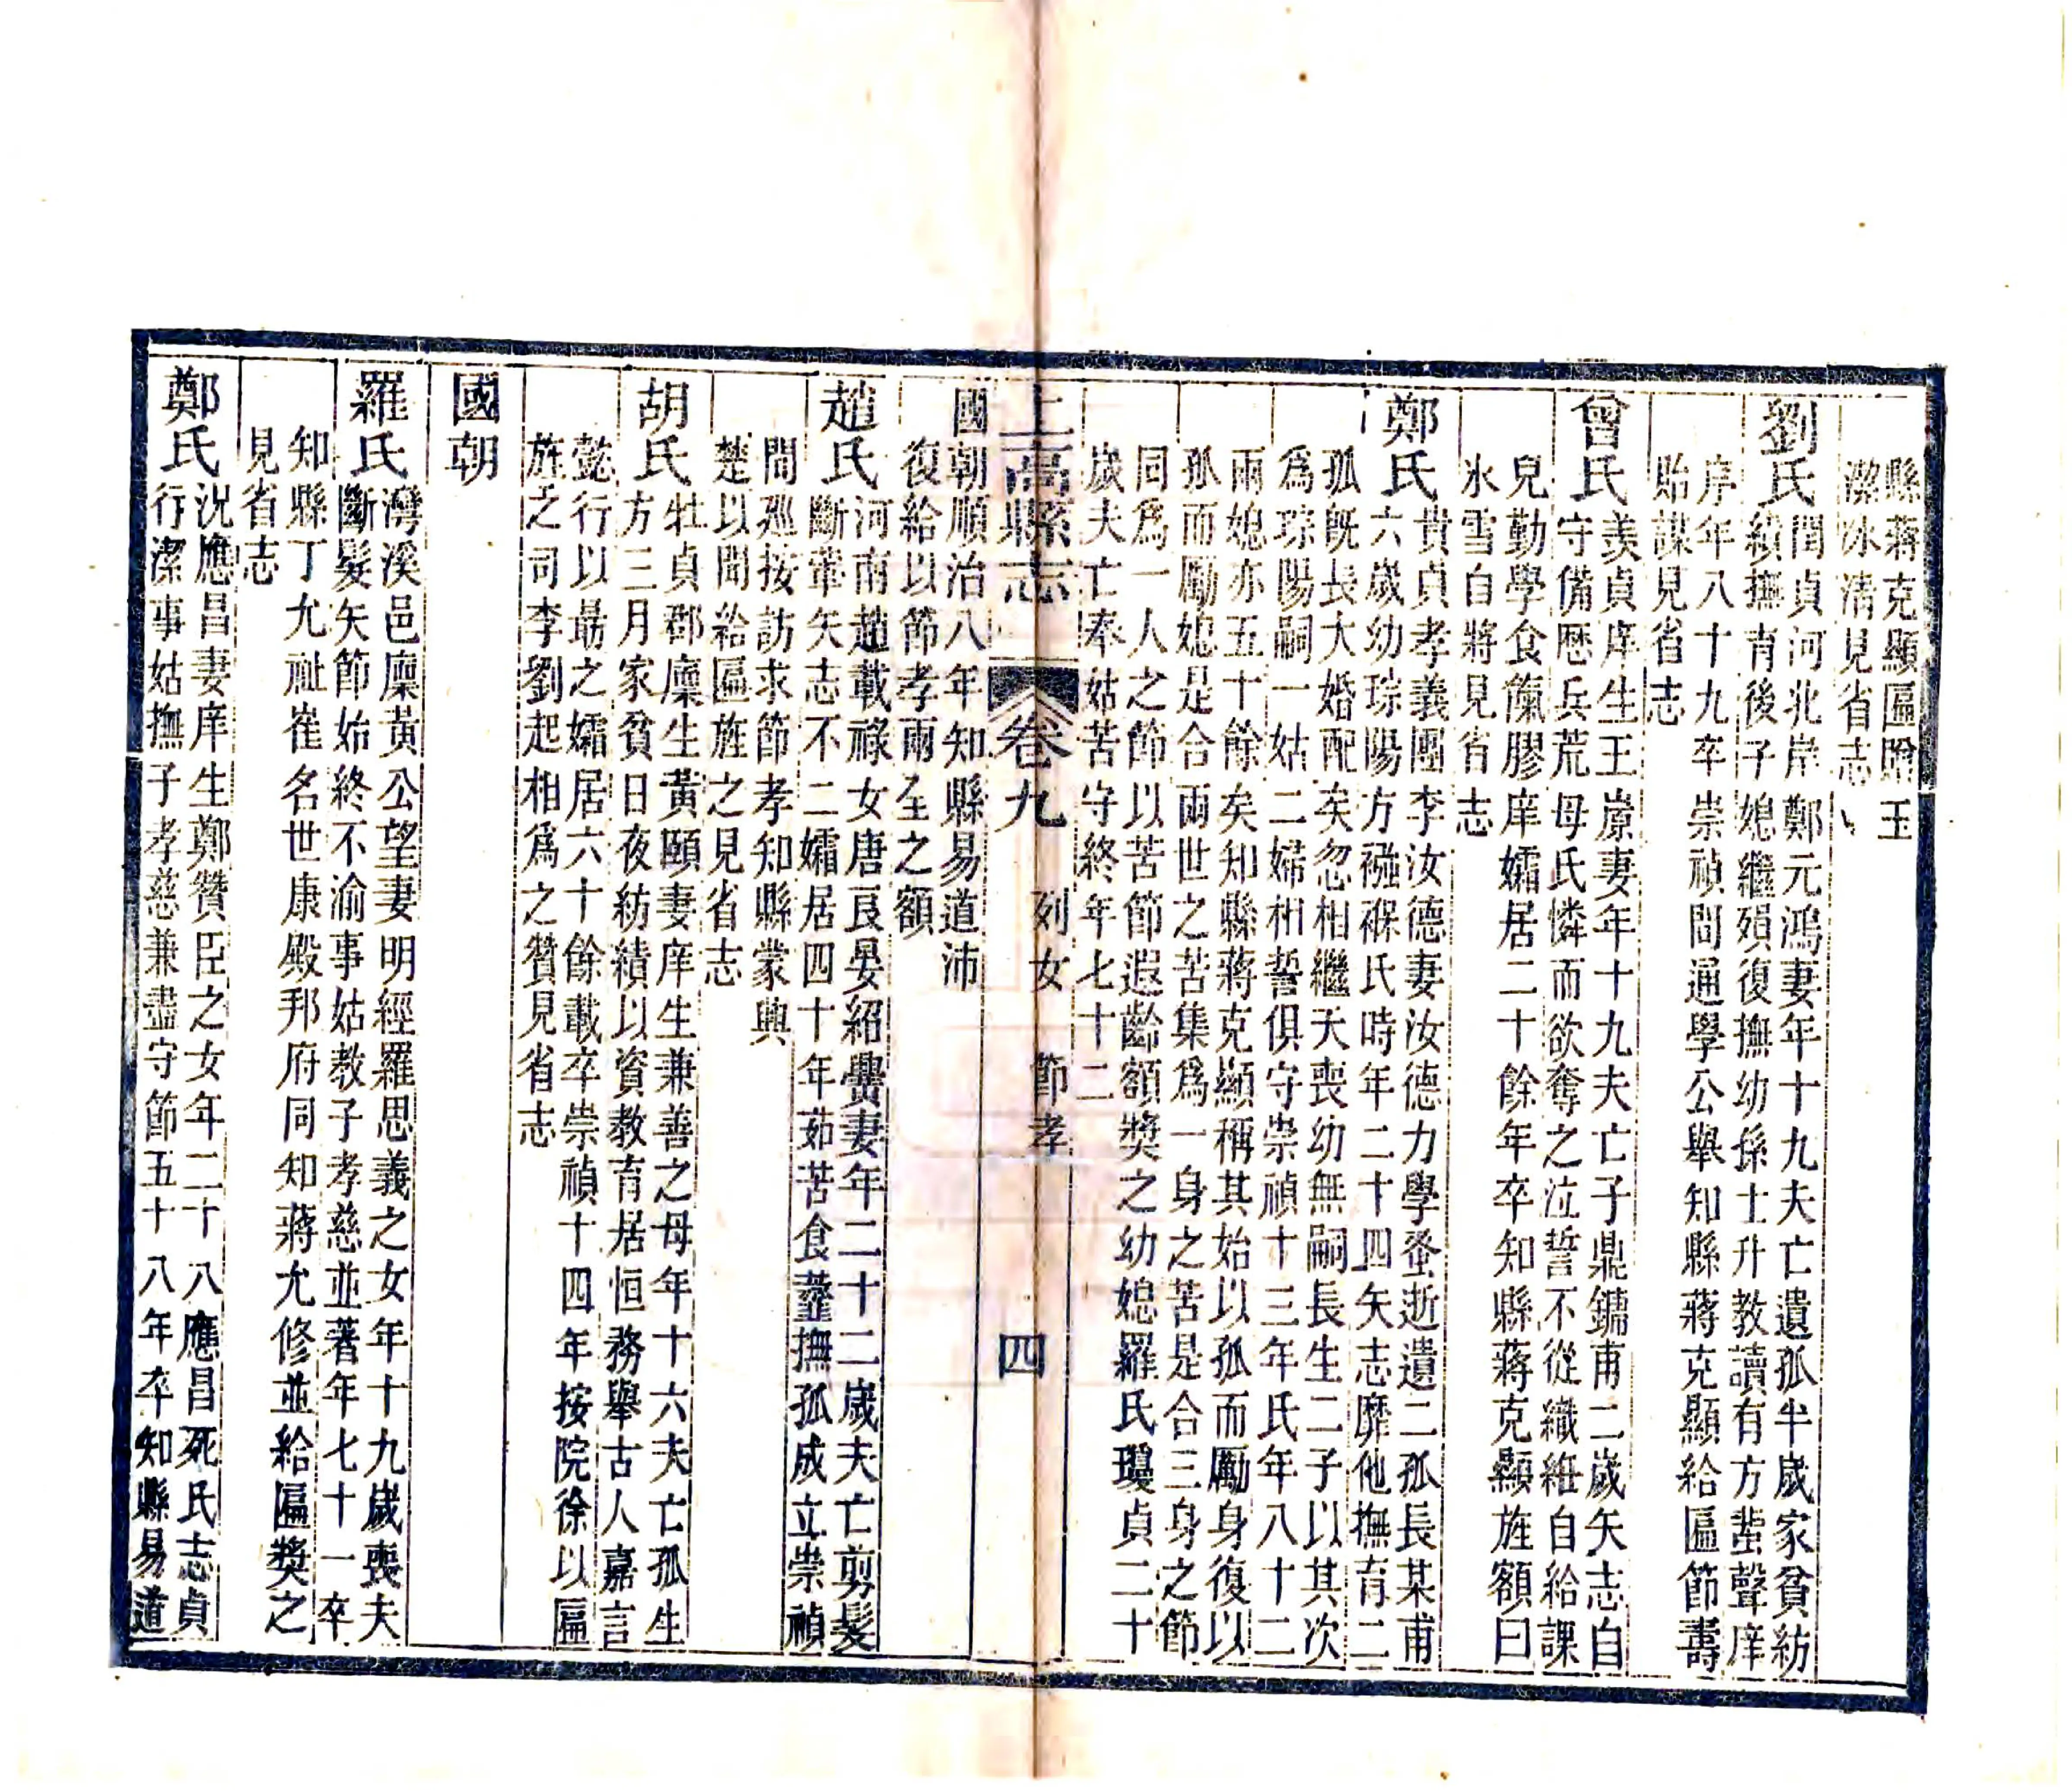 縣蔣克顯匾贈玉
潔冰清見省志
劉氏閏貞河北岸鄭元鴻妻年十九夫亡遺孤半歲家貧紡
績撫育後子媳繼殞復撫幼孫士升教讀有方蜚聲庠
序年八十九卒崇禎間通學公舉知縣蔣克顯給匾節壽
貽謀見省志
曾氏美貞庠生王崇妻年十九夫亡子鼎鏞甫二歲矢志自
守備歷兵荒母氏憐而欲奪之泣誓不從織絍自給課
兒勤學食餼膠庠孀居二十餘年卒知縣蔣克顯旌額曰
氷雪自將見省志
鄭氏貴貞孝義團李汝德妻汝德力學蚤逝遺二孤長某甫
六歲幼琮陽方襁褓氏時年二十四矢志靡他撫育二
孤旣長大婚配矣忽相繼夭喪幼無嗣長生二子以其次
爲琮陽嗣一姑二婦相誓俱守崇禎十三年氏年八十二
兩媳亦五十餘矣知縣蔣克顯稱其始以孤而勵身復以
孤而勵媳是合兩世之苦集爲一身之苦是合三身之節
同爲一人之節以苦節遐齡額獎之幼媳羅氏瓊貞二十
歲夫亡奉姑苦守終年七十二
上高縣志
卷九
列女 節孝
四
國朝順治八年知縣易道沛
復給以節孝兩全之額
趙氏河南趙載祿女唐艮晏紹舋妻年二十二歲夫亡剪髮
斷葷矢志不二孀居四十年茹苦食虀撫孤成立崇禎
間廵按訪求節孝知縣蒙興
楚以聞給匾旌之見省志
胡氏牡貞郡廩生黃頤妻庠生兼善之母年十六夫亡孤生
方三月家貧日夜紡績以資教育居恒務舉古人嘉言
懿行以勗之孀居六十餘載卒崇禎十四年按院徐以匾
旌之司李劉起相爲之贊見省志
國朝
羅氏灣溪邑廩黃公望妻明經羅思義之女年十九歲喪夫
斷髮矢節始終不渝事姑教子孝慈並著年七十一卒
知縣丁允祉崔名世康殿邦府同知蔣允修並給匾獎之
見省志
鄭氏況應昌妻庠生鄭贊臣之女年二十八應昌死氏志貞
行潔事姑撫子孝慈兼盡守節五十八年卒知縣易道